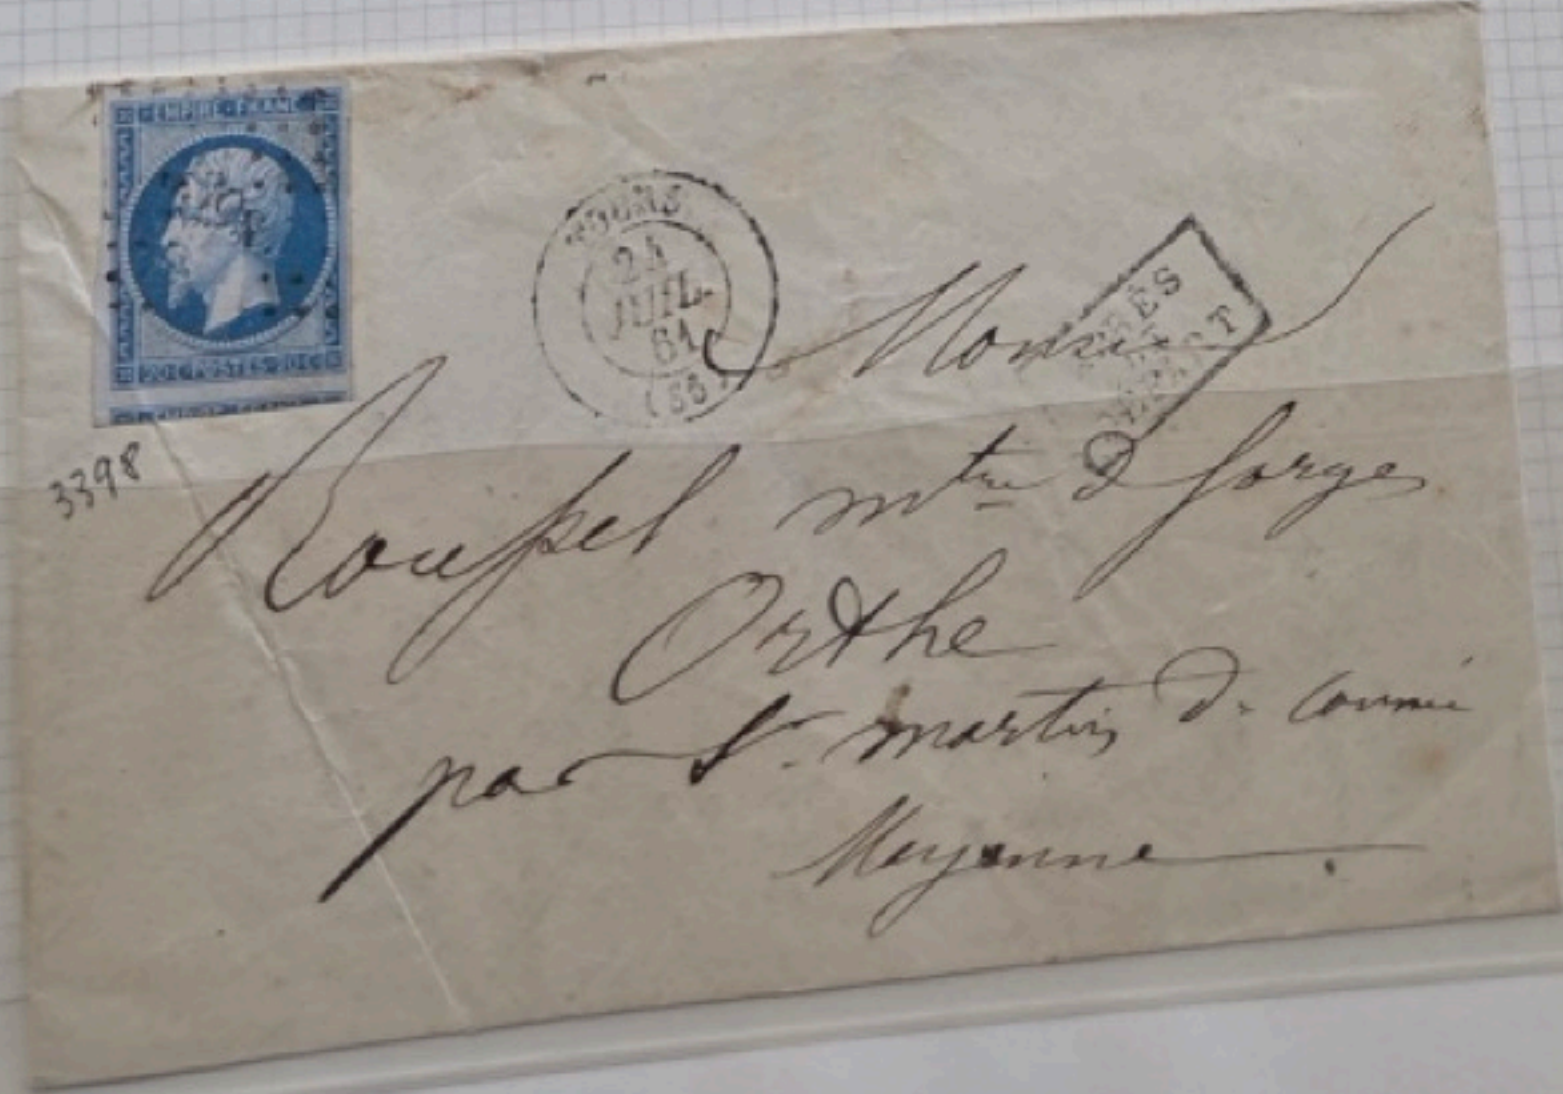 EMPIRE FRANC
20 C POSTES 20 C
3398
TOURS
24
JUIL.
61
(36)
APRÈS
LE
DÉPART
Monsieur
Roussel mtre de forges
Orthe
par St. martin de connée
Mayenne